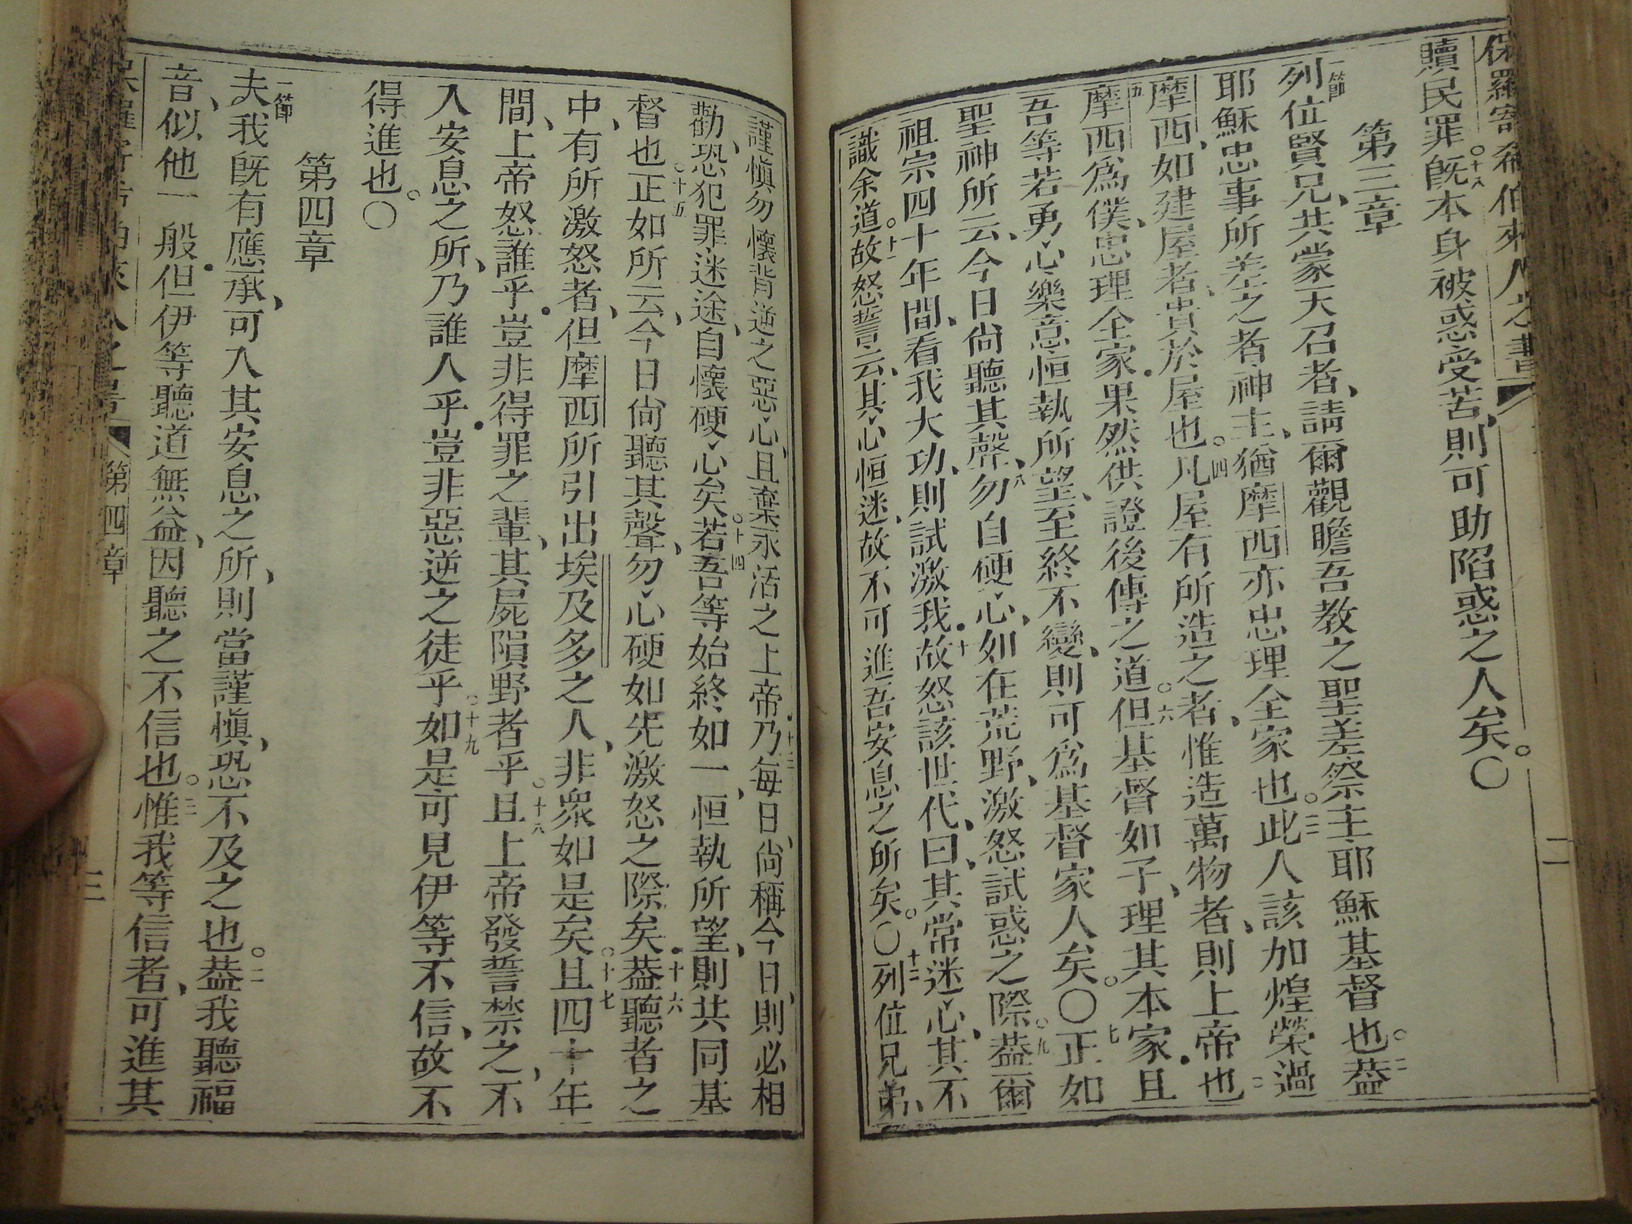 保羅寄希伯來人之書
二
贖民罪。十八旣本身被惑受苦、則可助陷惑之人矣。〇
第三章
一節列位賢兄、共蒙天召者、請爾觀瞻吾教之聖差祭主耶穌基督也。二葢
耶穌忠事所差之者神主、猶摩西亦忠理全家也。三此人該加煌榮過
摩西、如建屋者、貴於屋也。四凡屋有所造之者、惟造萬物者、則上帝也
五摩西爲僕、忠理全家、果然供證後傳之道。六但基督如子、理其本家、且
吾等若勇心樂意恒執所望、至終不變、則可爲基督家人矣。〇七正如
聖神所云、今日尙聽其聲、八勿自硬心、如在荒野、激怒試惑之際。九葢爾
祖宗四十年間、看我大功、則試激我。十故怒該世代、曰、其常迷心、其不
識余道。十一故怒誓云、其心恒迷、故不可進吾安息之所矣。〇十二列位兄弟、
謹愼勿懷背逆之惡心、且棄永活之上帝。十三乃每日、尙稱今日、則必相
勸、恐犯罪迷途、自懷硬心矣。十四若吾等始終如一、恒執所望、則共同基
督也。十五正如所云、今日尙聽其聲、勿心硬如先激怒之際矣。十六葢聽者之
中、有所激怒者、但摩西所引出埃及多之人、非衆如是矣。十七且四十年
間、上帝怒誰乎。豈非得罪之輩、其屍隕野者乎。十八且上帝發誓禁之、不
入安息之所、乃誰人乎。豈非惡逆之徒乎。十九如是可見伊等不信、故不
得進也。〇
第四章
一節夫我旣有應承、可入其安息之所、則當謹愼、恐不及之也。二葢我聽福
音、似他一般。但伊等聽道無益、因聽之不信也。三惟我等信者、可進其
第四章
三